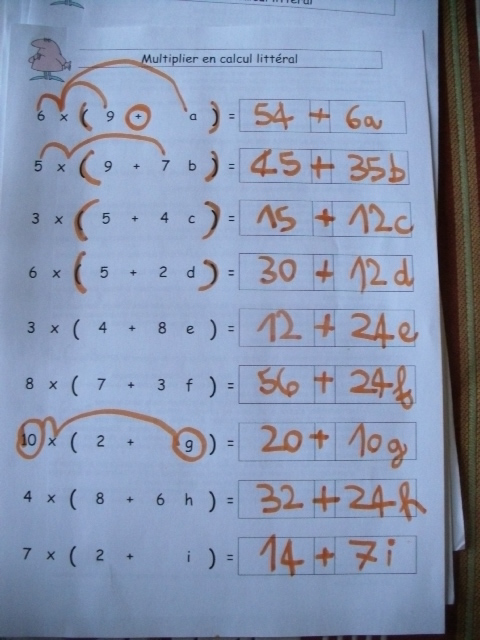 Multiplier en calcul littéral
6 x ( 9 + a ) = 54 + 6a
5 x ( 9 + 7 b ) = 45 + 35b
3 x ( 5 + 4 c ) = 15 + 12c
6 x ( 5 + 2 d ) = 30 + 12d
3 x ( 4 + 8 e ) = 12 + 24e
8 x ( 7 + 3 f ) = 56 + 24f
10 x ( 2 + g ) = 20 + 10g
4 x ( 8 + 6 h ) = 32 + 24h
7 x ( 2 + i ) = 14 + 7i